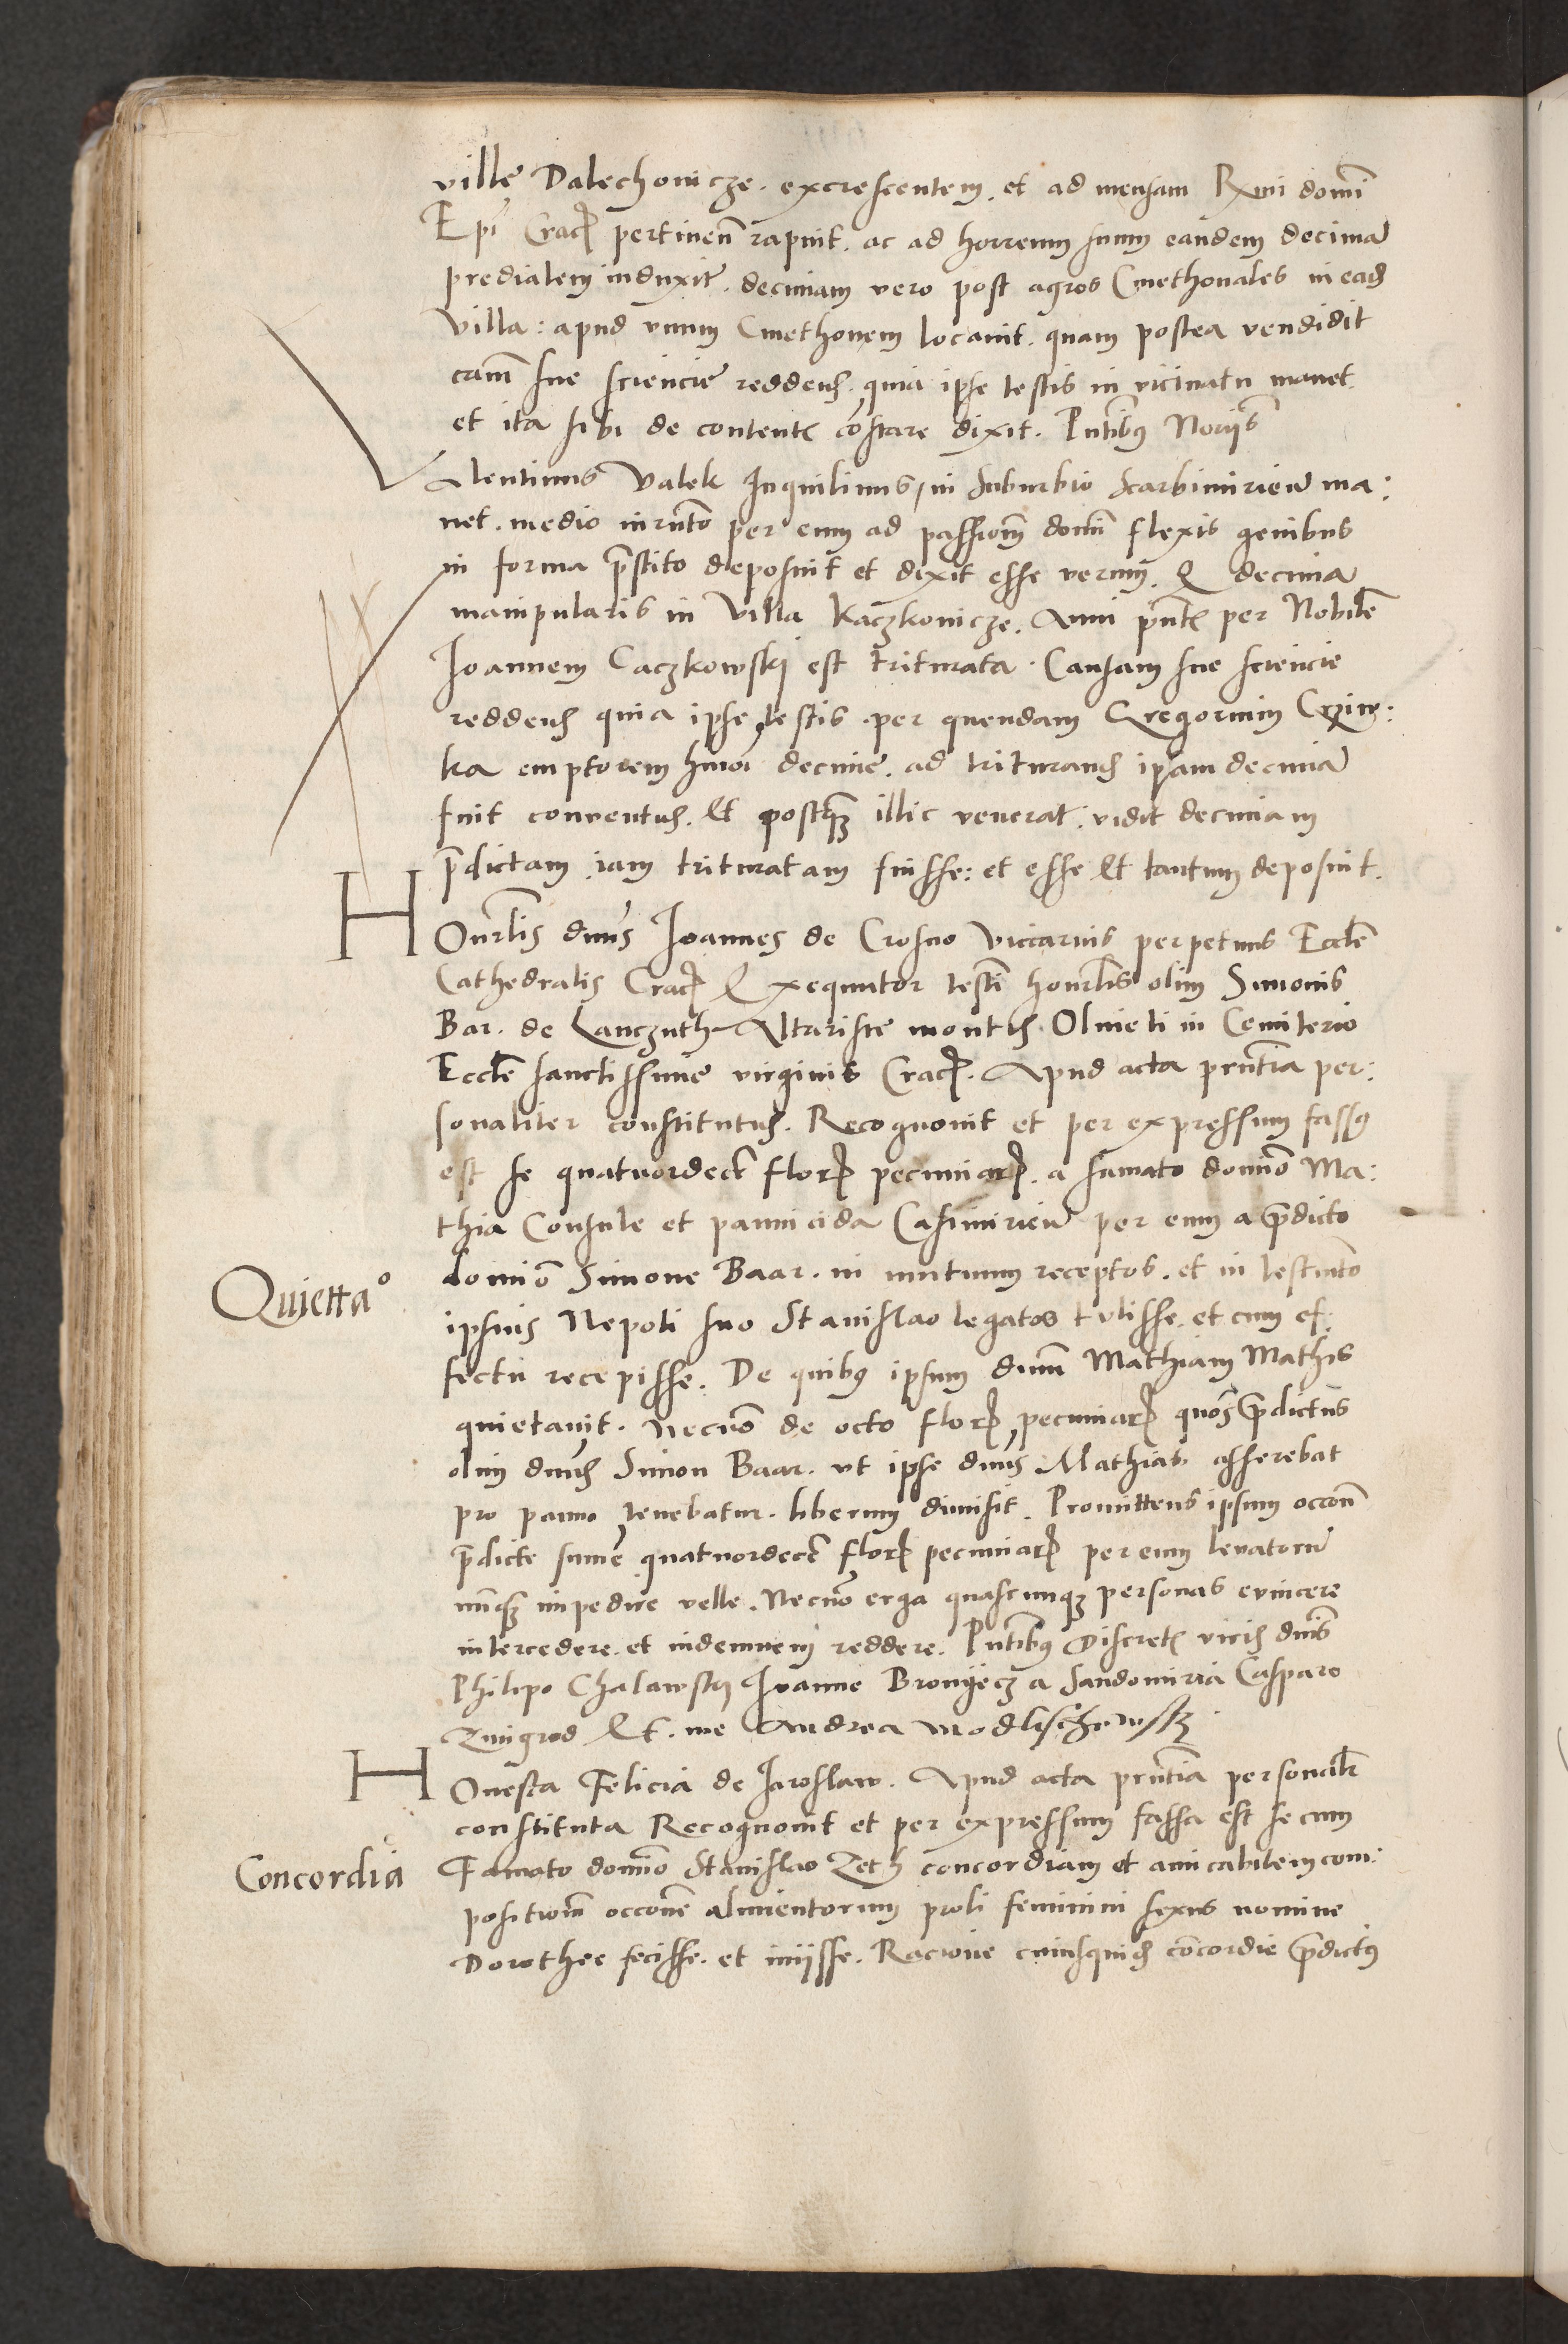 ville Dalechonicze. excrescentem. et ad mensam Rmi domi
Epi Crac pertinen rapuit. ac ad horreum suum eandem decima
predialem induxit. decimam vero post agros Cmethonales in ead
Villa: apud vnum Cmethonem locauit. quam postea vendidit
cam sue sciencie reddens. quia ipse testis in vicinatu manet.
et ita sibi de content costare dixit. Pntibus Norijs
Valentinus Valek Inquilinus, in suburbio Scarbimirien ma:
net. medio iurnto per eum ad passiom domi flexis genibus
in forma pstito deposuit et dixit esse verum. Q decima
manipularis in Villa Kaczkonicze. Anni pnt per Nobile
Joannem Caczkowskj est triturata. Causam sue sciencie
reddens quia ipse testis. per quendam Gregorium Crziw:
ka emptorem hmoi decime. ad triturand ipam decima
fuit conuentus. Et postqz illic venerat. vidit decimam
pdictam iam trituratam fuisse: et esse Et tantum deposuit.
HOnrlis dnus Joannes de Crosno Viccarius perpetuus Eccle
Cathedralis Crac Exequutor testi honrlis olim Simonis
Bar. de Lanczuth Altariste montis Oliueti in Cemiterio
Eccle sanctissime virginis Crac. Apud acta prntia per:
sonaliter constitutus. Recognouit et per expressum fassus
est se quatuordeci flor pecuniar. a famato domo Ma:
thia Consule et pannicida Casimirien per eum a pdicto
Quietta° domio Simone Baar. in mutuum receptos. et in testmto
ipsius Nepoti suo Stanislao legatos tulisse. et cum ef:
fectu recepisse. De quibus ipsum dnum Mathiam Mathis
quietauit. Necno de octo flor pecuniar quos pdictus
olim dnus Simon Baar. vt ipse dnus Mathias asserebat
pro panno tenebatur. liberum dimisit. Promittens ipsum occon
pdicte sume quatuordeci flor pecuniar per eum leuatoru
nuqz impedire velle. Necno erga quascunqz personas euincere
intercedere. et indemnem reddere. Pntibus Discret viris dnis
Philipo Chalawskj Joanne Bronyecz a Sandomiria Casparo
Zmigrod Et. me Andrea Modlischewskj
HOnesta Felicia de Jaroslaw. Apud acta prntia personalr
constituta Recognouit et per expressum fassa est se cum
Concordia Famato domio Stanislao Zeth concordiam et amicabilem com:
positiom occone alimentorum proli feminini sexus nomine
Dorothee fecisse. et inijsse. Racione cuiusquid concordie pdictus